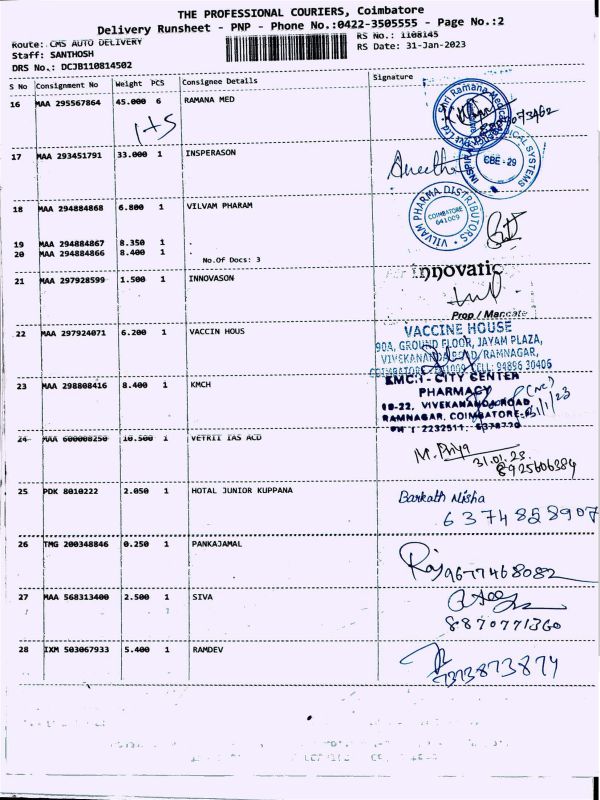 THE PROFESSIONAL COURIERS, Coimbatore
Delivery Runsheet - PNP - Phone No.:0422-3505555 - Page No.:2
Route: CMS AUTO DELIVERY
RS No.: 1108145
Staff: SANTHOSH
RS Date: 31-Jan-2023
DRS No.: DCJB110814502
S No Consignment No Weight PCS Consignee Details Signature
16 MAA 295567864 45.000 6 RAMANA MED
1+5
17 MAA 293451791 33.000 1 INSPERASON
CBE - 29
18 MAA 294884868 6.800 1 VILVAM PHARAM
VILVAM PHARMA DISTRIBUTORS
COIMBATORE
641009
19 MAA 294884867 8.350 1 .
20 MAA 294884866 8.400 1 .
No.Of Docs: 3
21 MAA 297928599 1.500 1 INNOVASON
innovatic
Prop / Mandate
22 MAA 297924071 6.200 1 VACCIN HOUS
VACCINE HOUSE
90A, GROUND FLOOR, JAYAM PLAZA,
VIVEKANANDA ROAD, RAMNAGAR,
COIMBATORE - 641009 CELL: 94896 30406
23 MAA 298808416 8.400 1 KMCH
KMCH - CITY CENTER
PHARMACY
19-22, VIVEKANANDA ROAD
RAMNAGAR, COIMBATORE-9
31/1/23
24 MAA 600008250 10.500 1 VETRII IAS ACD
M. Priya
31.01.23.
8925606384
25 PDK 8010222 2.050 1 HOTAL JUNIOR KUPPANA
Barkath Nisha
6374828907
26 TMG 200348846 0.250 1 PANKAJAMAL
Raj 9677468082
27 MAA 568313400 2.500 1 SIVA
8870771360
28 IXM 503067933 5.400 1 RAMDEV
7373873874